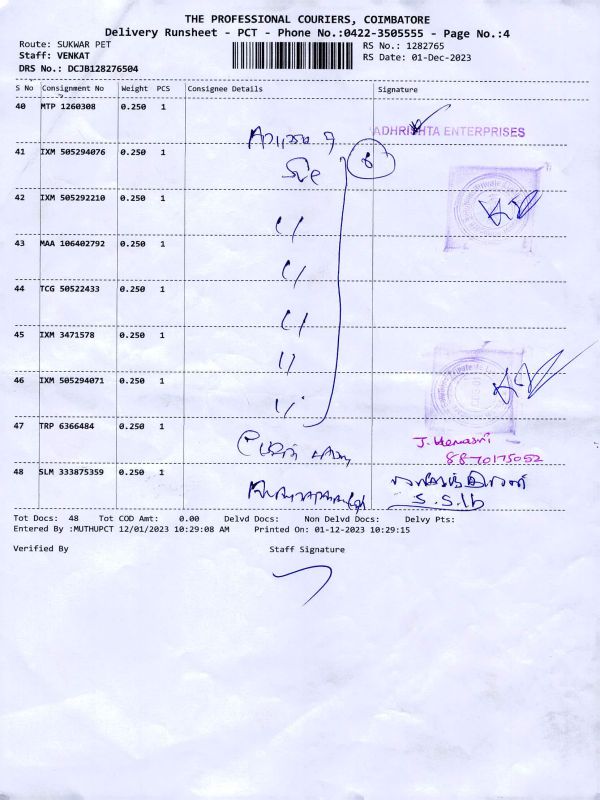 THE PROFESSIONAL COURIERS, COIMBATORE
Delivery Runsheet - PCT - Phone No.:0422-3505555 - Page No.:4
Route: SUKWAR PET
RS No.: 1282765
Staff: VENKAT
RS Date: 01-Dec-2023
DRS No.: DCJB128276504
S No Consignment No Weight PCS Consignee Details Signature
40 MTP 1260308 0.250 1
ADHRISHTA ENTERPRISES
41 IXM 505294076 0.250 1
6
42 IXM 505292210 0.250 1
43 MAA 106402792 0.250 1
44 TCG 50522433 0.250 1
45 IXM 3471578 0.250 1
46 IXM 505294071 0.250 1
47 TRP 6366484 0.250 1
8870175052
48 SLM 333875359 0.250 1
Tot Docs: 48 Tot COD Amt: 0.00 Delvd Docs: Non Delvd Docs: Delvy Pts:
Entered By :MUTHUPCT 12/01/2023 10:29:08 AM Printed On: 01-12-2023 10:29:15
Verified By Staff Signature